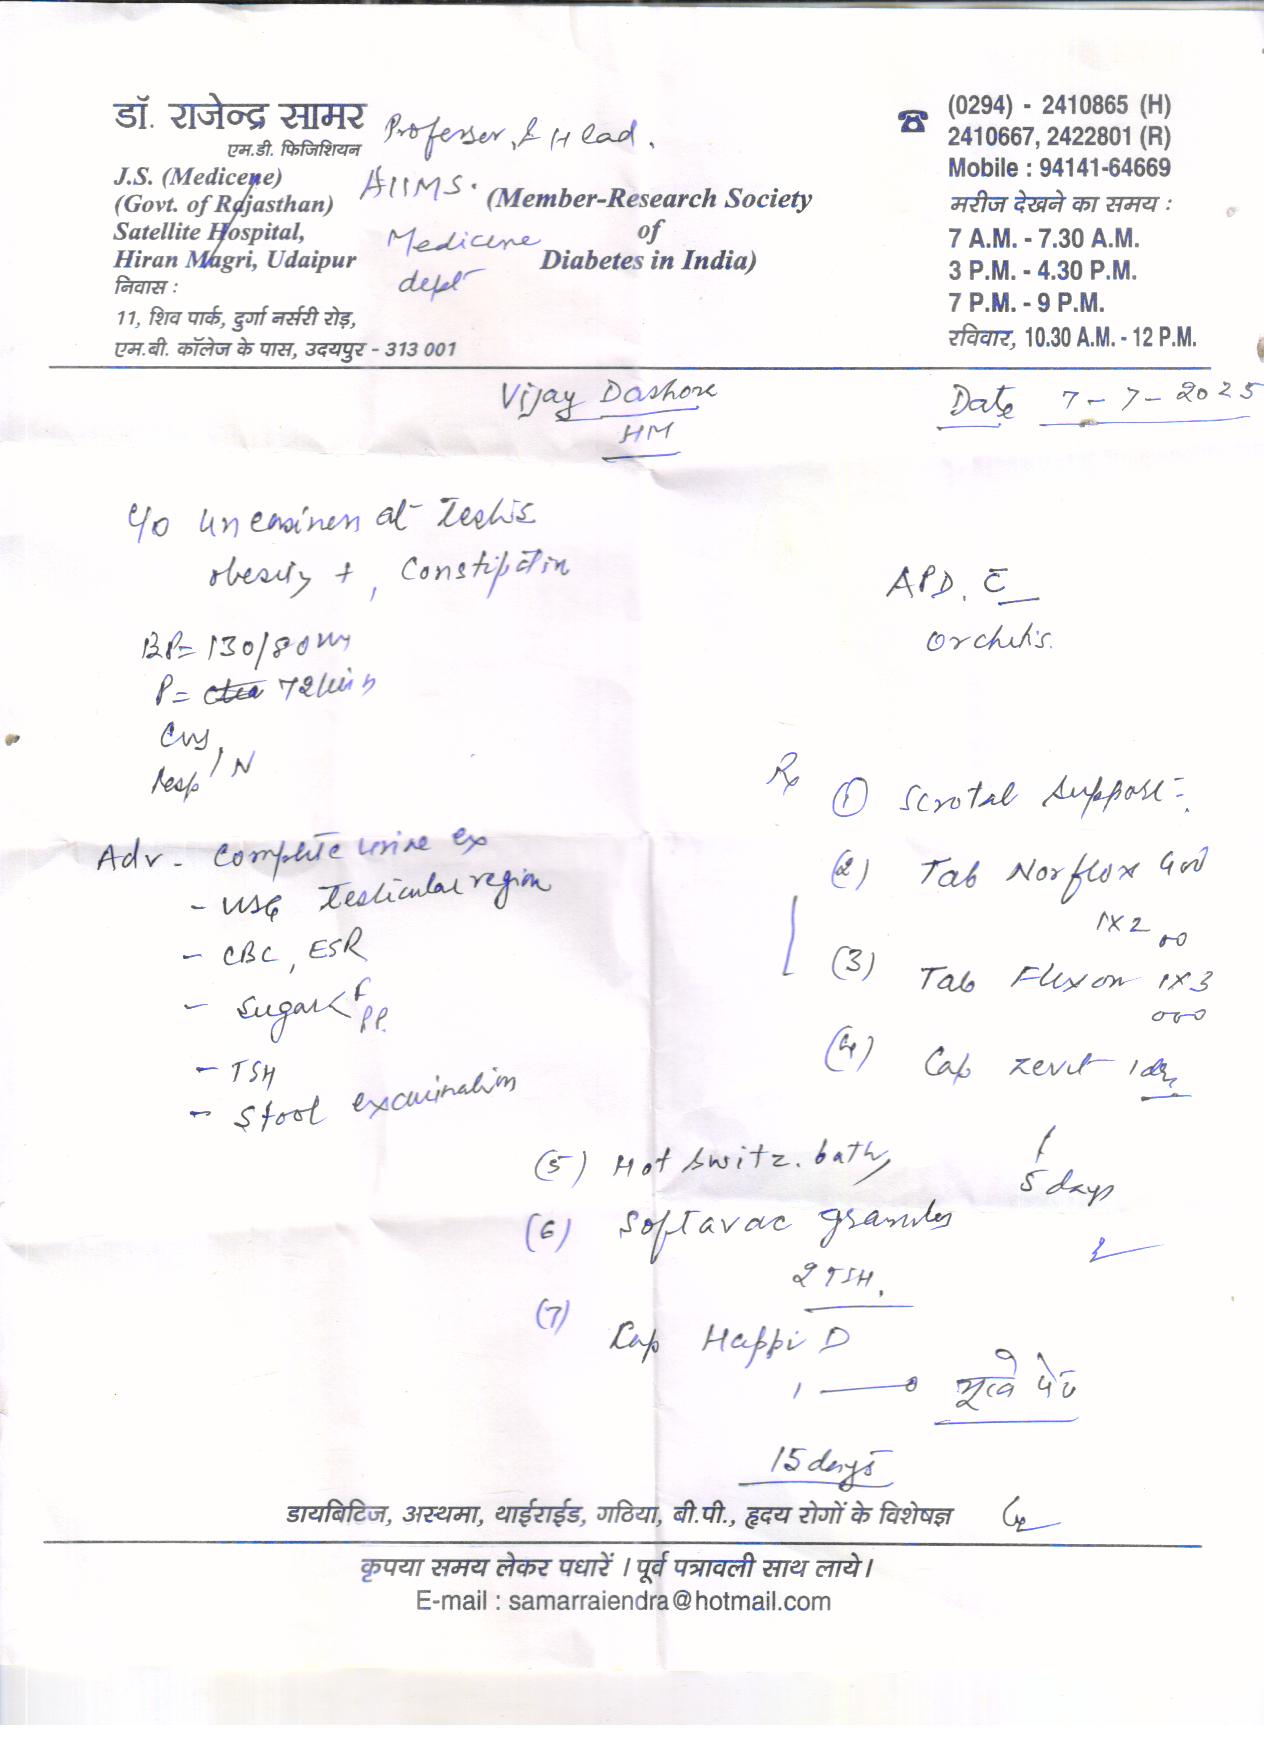 डॉ. राजेन्द्र सामर
एम.डी. फिजिशियन
J.S. (Medicene)
(Govt. of Rajasthan)
Satellite Hospital,
Hiran Magri, Udaipur
निवास :
11, शिव पार्क, दुर्गा नर्सरी रोड़,
एम.बी. कॉलेज के पास, उदयपुर - 313 001
Professer & Head.
AIIMS.
Medicene
dept
(Member-Research Society
of
Diabetes in India)
☎ (0294) - 2410865 (H)
2410667, 2422801 (R)
Mobile : 94141-64669
मरीज देखने का समय :
7 A.M. - 7.30 A.M.
3 P.M. - 4.30 P.M.
7 P.M. - 9 P.M.
रविवार, 10.30 A.M. - 12 P.M.
Vijay Dashore
HM
Date 7-7-2025
C/o uneasiness at Testis
obesity +, Constipation
BP= 130/80
P= 72/min
CVS,
Resp / N
APD. C
orchitis.
Adv - Complete urine ex
- USG Testicular region
- CBC, ESR
- Sugar < F
PP.
- TSH
- Stool examination
Rx (1) Scrotal Support
(2) Tab Norflox 400
1x2
(3) Tab Flexon 1x3
(4) Cap Zevit 1
5 days
(5) Hot switz. bath
(6) Softavac granules
2 TSH.
(7) Cap Happi D
1 भूखे पेट
15 days
डायबिटिज, अस्थमा, थाईराईड, गठिया, बी.पी., हृदय रोगों के विशेषज्ञ
कृपया समय लेकर पधारें । पूर्व पत्रावली साथ लाये।
E-mail : samarraiendra@hotmail.com